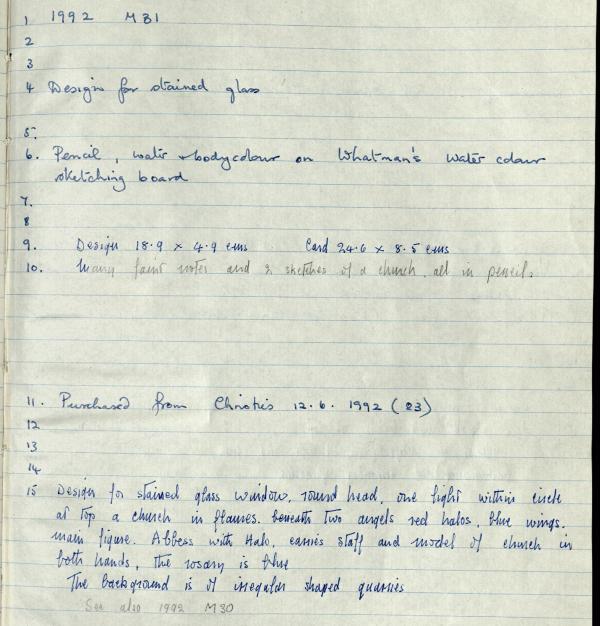 1 1992 M31
2
3
4 Design for stained glass
5.
6. Pencil, water + bodycolour on Whatman's Water colour
sketching board
7.
8
9. Design 18.9 x 4.9 cms Card 24.6 x 8.5 cms
10. Many faint notes and 2 sketches of a church, all in pencil.
11. Purchased from Christies 12.6.1992 (23)
12
13
14
15 Design for stained glass window, round head, one light within circle
at top a church in flames. beneath two angels red halos, blue wings.
main figure. Abbess with Halo, carries staff and model of church in
both hands, the rosary is blue
The background is of irregular shaped quarries
See also 1992 M30